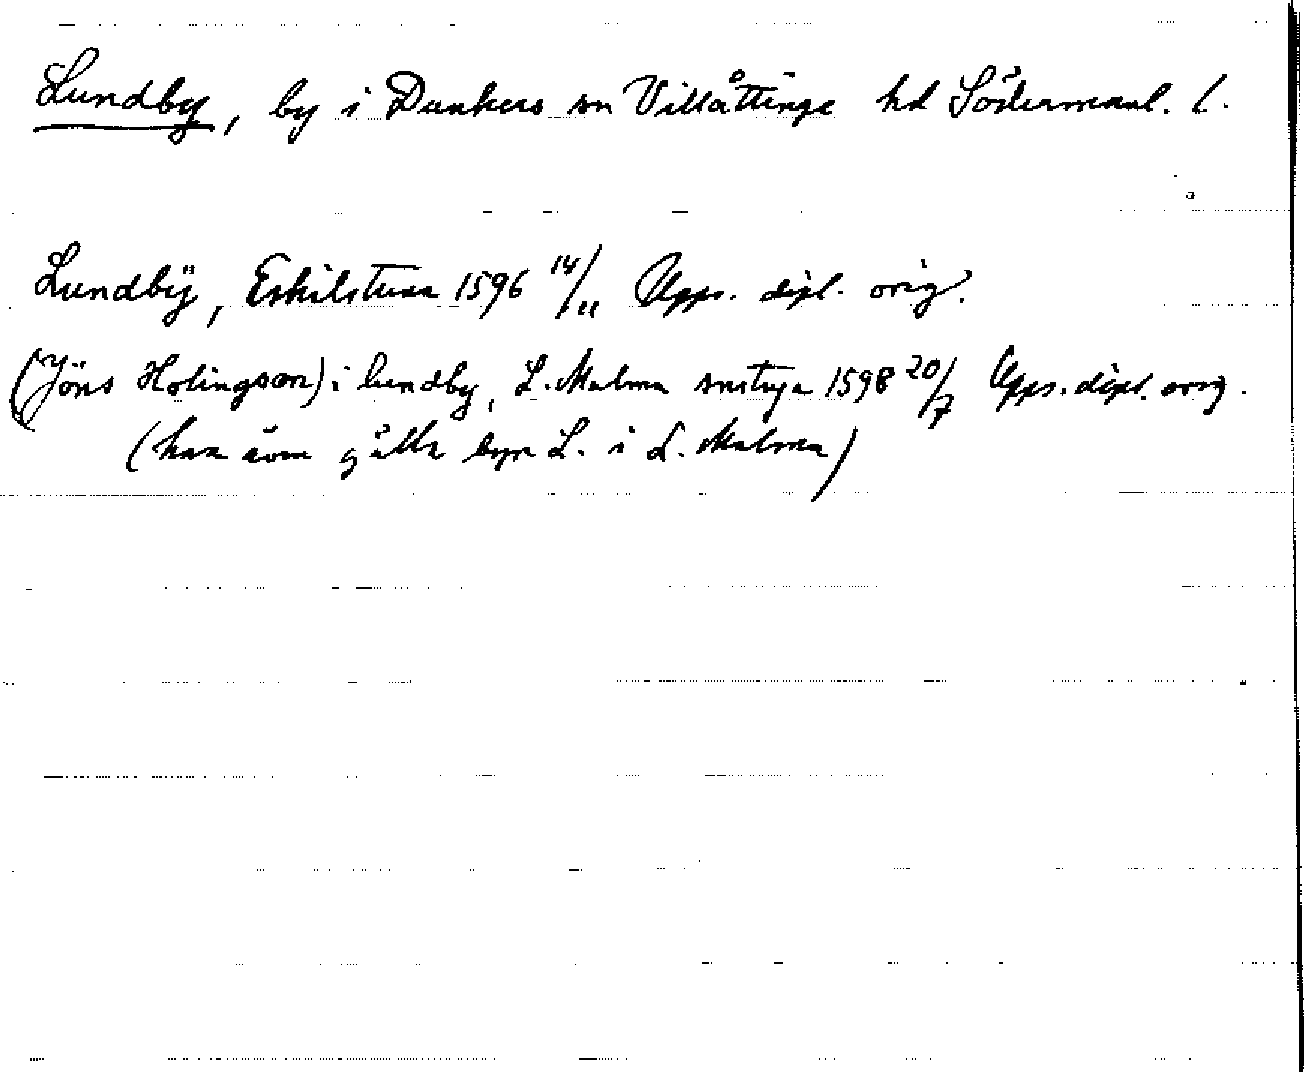 Lundby, by i Dunkers sn Villåttinge hd Södermanl. l.
Lundbÿ, Eskilstuna 1596 14/11 Upps. dipl. orig.
(Jöns Holingson) i lundby, L. Malma snstuga 1598 20/7 Upps. dipl. orig.
(kan även gälla byn L. i L. Malma)